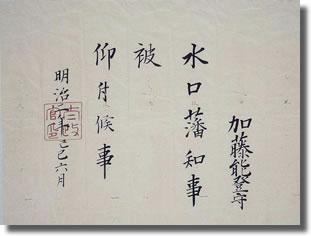 加藤能登守
水口藩知事
被
仰付候事
明治二年己巳六月